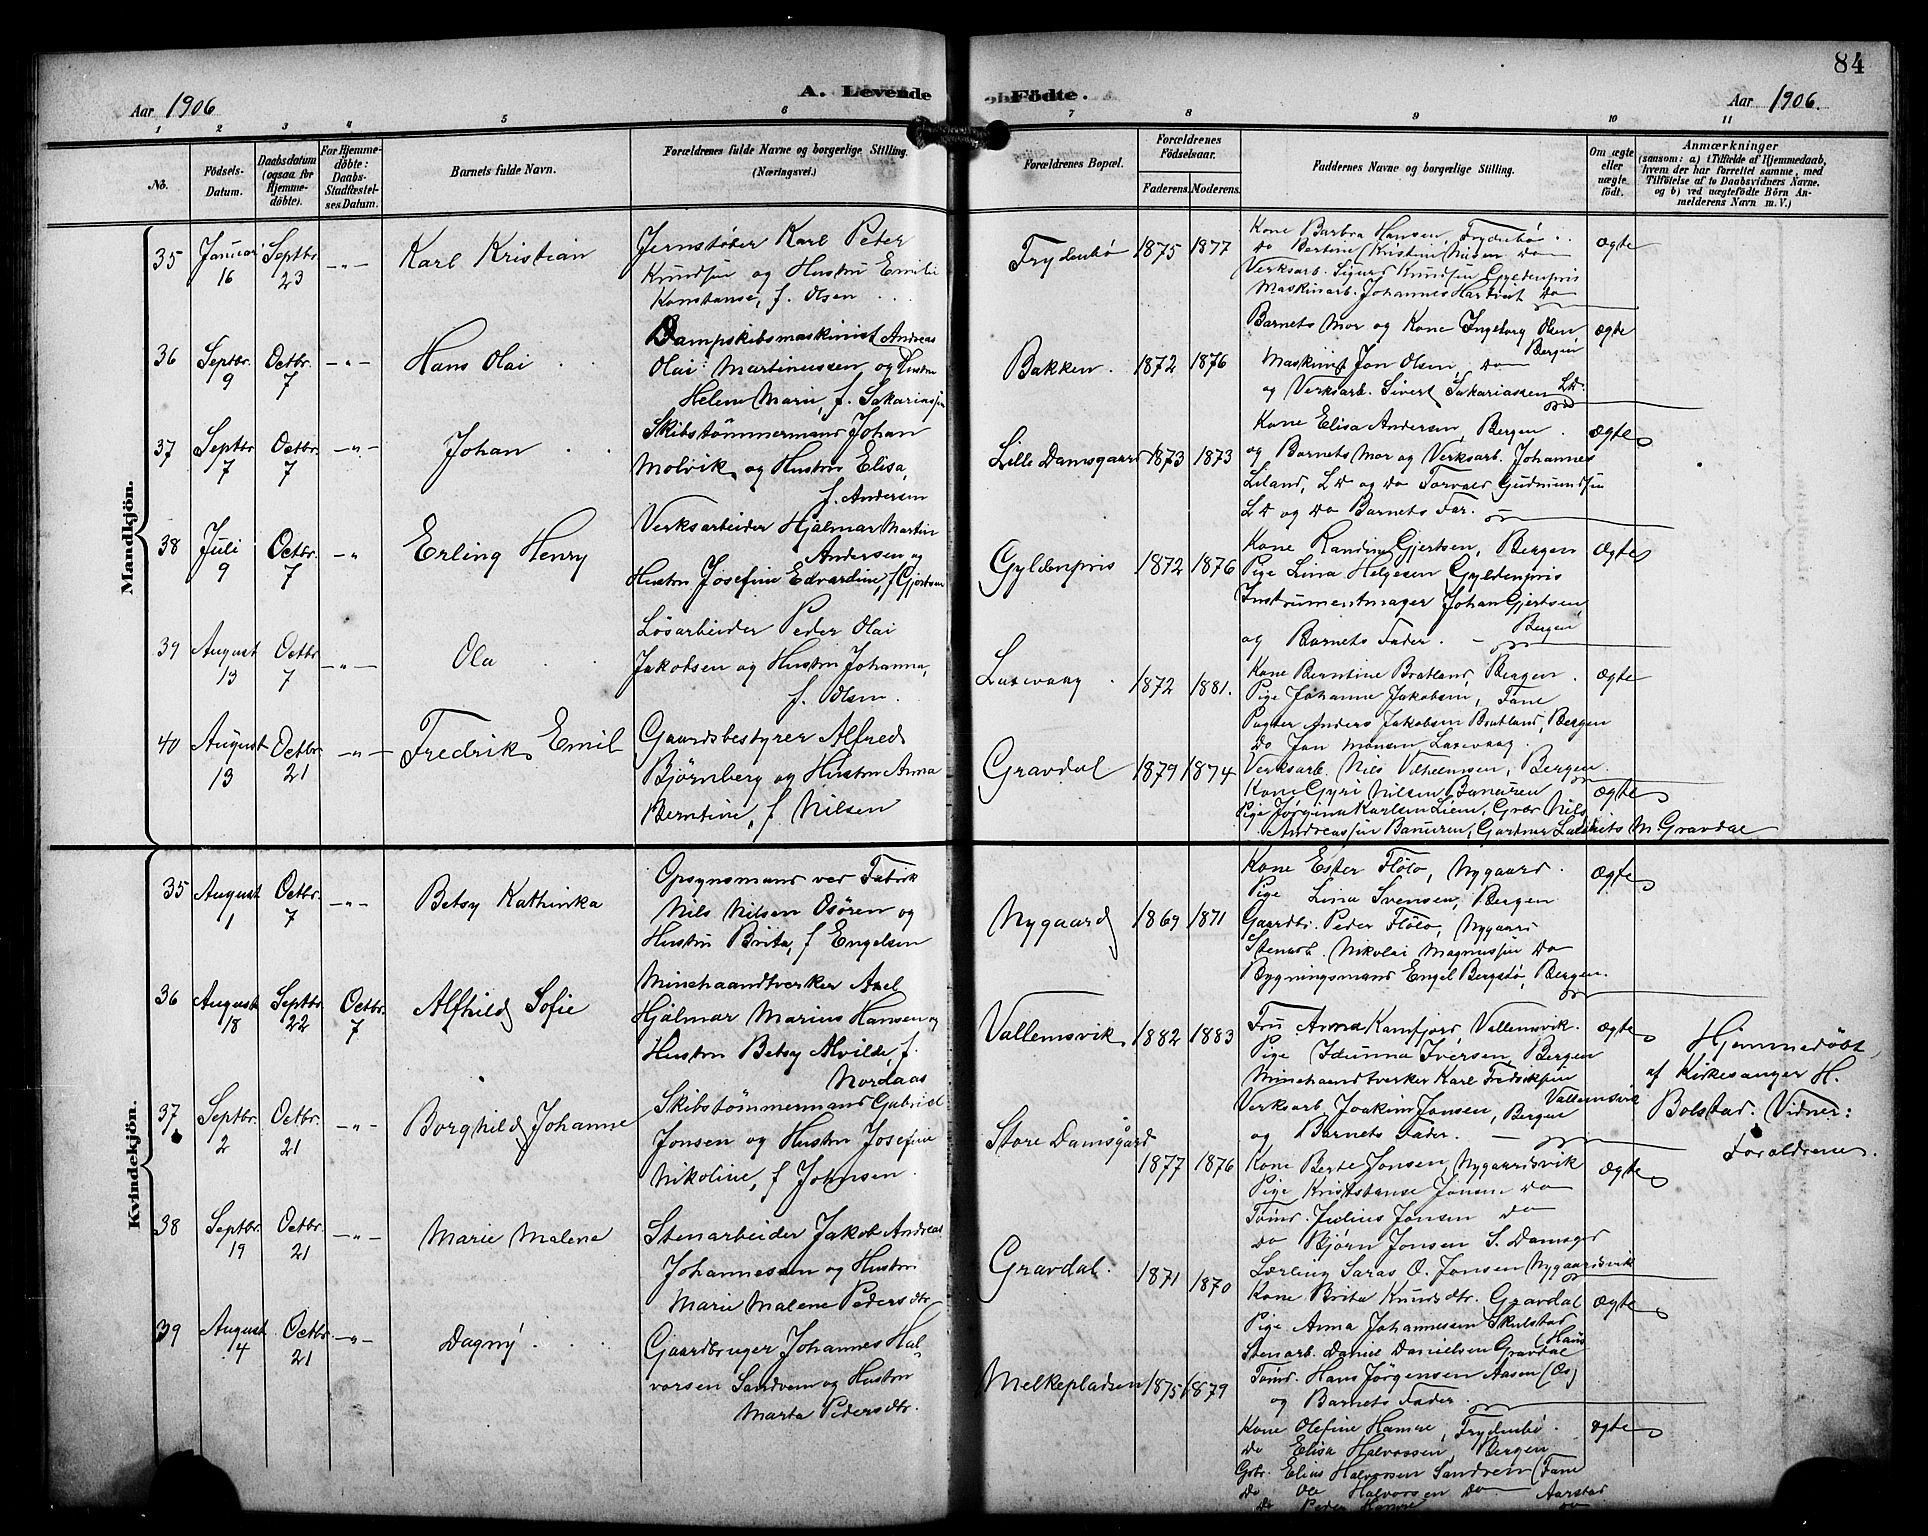 84
A. Levende Födte.
Aar 1906
Aar 1906.
1 2 3 4 5 6 7 8 9 10 11
No.
Födsels-Datum.
Daabsdatum (ogsaa for Hjemme-döbte).
For Hjemme-döbte: Daabs-Stadfæstel-ses Datum.
Barnets fulde Navn.
Forældrenes fulde Navne og borgerlige Stilling. (Næringsvei.)
Forældrenes Bopæl.
Forældrenes Födselsaar.
Faderens. Moderens.
Faddernes Navne og borgerlige Stilling.
Om ægte eller uægte födt.
Anmærkninger
(saasom: a) i Tilfælde af Hjemmedaab, hvem der har forrettet samme, med Tilföielse af to Daabsvidners Navne. og b) ved uægtefödte Börn An-melderens Navn m. V.)
Mandkjön.
35 Januar 16 Septbr. 23 -"- Karl Kristian
Jernstøber Karl Peter
Knudsen og Hustru Emilie
Konstanse, f. Olsen
Frydenbø 1875 1877
Kone Barbra Hansen Frydenbø
Do Bertine (Kristine) Nilsen Do
Verksarb. Sigurd Knudsen Gyldenpris
Maskinarb. Johannes Hartvit Do
Ægte
36 Septbr. 9 Octbr. 7 -"- Hans Olai
Dampskibsmaskinist Andreas
Olai Martinussen og Hustru
Helene Marie, f. Sakariassen
Bakken. 1872 1876
Barnets Mor og Kone Ingeborg Olsen
Bergen
Maskinist Jon Olsen, Do
og Verksarb. Sivert Sakariassen Ld.
Ægte
37 Septbr. 7 Octbr. 7 -"- Johan
Skibstømmermand Johan
Molvik og Hustru Elisa,
f. Andersen
Lille Damsgaard 1873 1873
Kone Elisa Andersen, Bergen.
og Barnets Mor og Verksarb. Johannes
Liland, Ld og Do Torvald Gudmundsen
Ld og Do Barnets Far.
Ægte
38 Juli 9 Octbr. 7 -" Erling Henry
Verksarbeider Hjalmar Martin
Andersen og
Hustru Josefine Edvardine, f. Gjertsen
Gyldenpris 1872 1876
Kone Randine Gjertsen, Bergen
Pige Lina Helgesen Gyldenpris
Instrumentmager Johan Gjertsen,
Bergen
og Barnets Fader.
Ægte
39 August 13 Octbr 7 -"- Ola
Løsarbeider Peder Olai
Jakobsen og Hustru Johanna,
f. Olsen.
Laxevaag 1872 1881.
Kone Berntine Bratland, Bergen.
Pige Johanne Jakobsen, Fane
Pagter Anders Jakobsen Bratland, Bergen
Do Jan Monsen Laxevaag.
Verksarb. Nils Vilhelmsen, Bergen.
Ægte
40 August 13 Octbr. 21 -"- Fredrik Emil
Gaardsbestyrer Alfred
Bjørnberg og Hustru Anna
Berntine, f. Nilsen
Gravdal 1879 1874
Kone Gyri Nilsen Banuren
Pige Jørgine Karlsen Liem, Grbr Nils
Andreassen Banuren, Gartner M Gravdal
Ægte
Kvindekjön.
35 August 1 Octbr. 7 -"- Betsy Kathinka
Opsynsmand ved Fabrik
Nils Nilsen Osøren og
Hustru Brita, f Engelsen
Nygaard 1869 1871
Kone Ester Fløio, Nygaard.
Pige Lina Svensen, Bergen
Gaardbr. Peder Fløio, Nygaard
Stenarb. Nikolai Magnussen Do
Bygningsmand Engel Bergstø, Bergen.
Ægte
36 August 18 Septbr. 22 Octbr. 7 Alfhild Sofie
Minehaandtverker Axel
Hjalmar Marius Hansen og
Hustru Betsy Alvilde, f.
Nordaas
Vallemsvik 1882 1883
Fru Anna Kamfjord, Vallemsvik.
Pige Idunna Iversen, Bergen
Minehaandtverker Karl Fredriksen
Vallemsvik
Verksarb. Joakim Jonsen, Bergen
og Barnets Fader.
Ægte
Hjemmedøbt
af Kirkesanger H.
Bolstad. Vidner:
Forældrene.
37 Septbr. 2 Octbr. 21 -"- Borghild Johanne
Skibstømmermand Gabriel
Jonsen og Hustru Josefine
Nikoline, f Johnsen
Store Damsgård 1877 1876
Kone Berte Jonsen, Nygaardsvik
Pige Kristanse Jonsen Do
Tømr. Julius Jonsen Do
Do Bjørn Jonsen S. Damsgr
Lærling Saras O. Jonsen Nygaardsvik
Ægte
38 Septbr. 19 Octbr. 21 -"- Marie Malene
Stenarbeider Jakob Andreas
Johannesen og Hustru
Marie Malene Pedersdtr.
Gravdal. 1871 1870
Kone Brita Knudsdtr. Gravdal
Pige Anna Johannessen Skulstad
(Haus
Stenarb. Daniel Danielsen Gravdal
Tømr. Hans Jørgensen Aasen (Os)
og Barnets Fader.
Ægte
39 August 4 Octbr. 21 -"- Dagny
Gaardbruger Johannes Hal-
vorsen Sandven og Hustru
Marta Pedersdtr.
Melkepladsen 1875 1879
Kone Olefine Hamre, Frydenbø.
Do Elisa Halvorsen, Bergen
Gbr. Elias Halvorsen Sandven (Fane
Do Ole Halvorsen Do Aarstad
Do Peder Hamre Do
Ægte